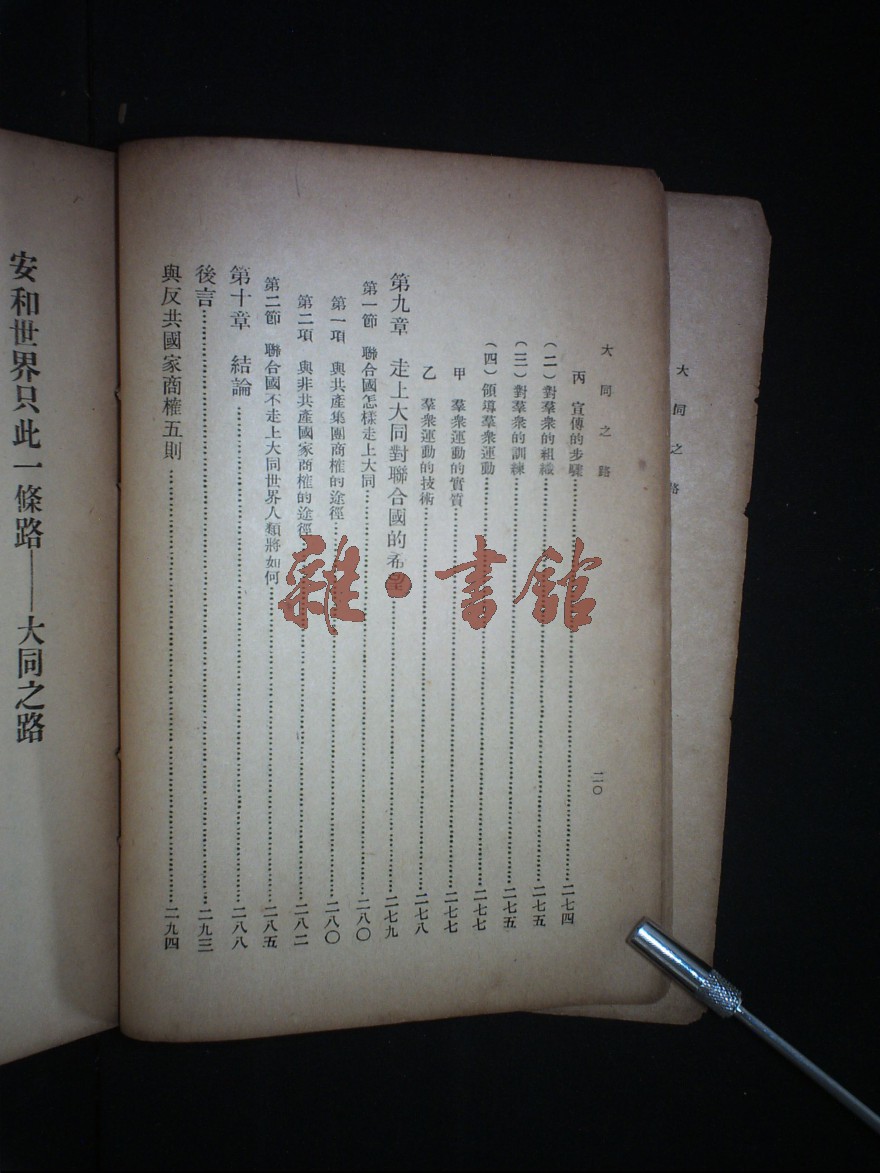 大同之路
大同之路
二〇
丙 宣傳的步驟 二七四
(二)對羣衆的組織 二七五
(三)對羣衆的訓練 二七五
(四)領導羣衆運動 二七七
甲 羣衆運動的實質 二七七
乙 羣衆運動的技術 二七八
第九章 走上大同對聯合國的希望 二七九
第一節 聯合國怎樣走上大同 二八〇
第一項 與共產集團商榷的途徑 二八〇
第二項 與非共產國家商榷的途徑 二八二
第二節 聯合國不走上大同世界人類將如何 二八五
第十章 結論 二八八
後言 二九三
與反共國家商榷五則 二九四
安和世界只此一條路——大同之路
雜·書館